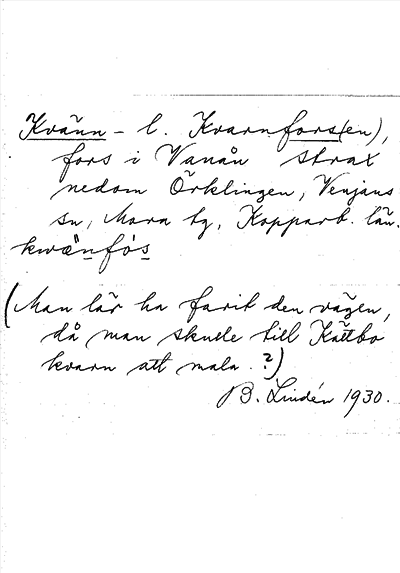 Kvänn- l. Kvarnfors(en),
fors i Vanån strax
nedom Örklingen, Venjans
sn, Mora tg, Kopparb. län.
kwänfòs
(Man lär ha farit den vägen,
då man skulle till Kättbo
kvarn att mala.?)
B. Lindén 1930.